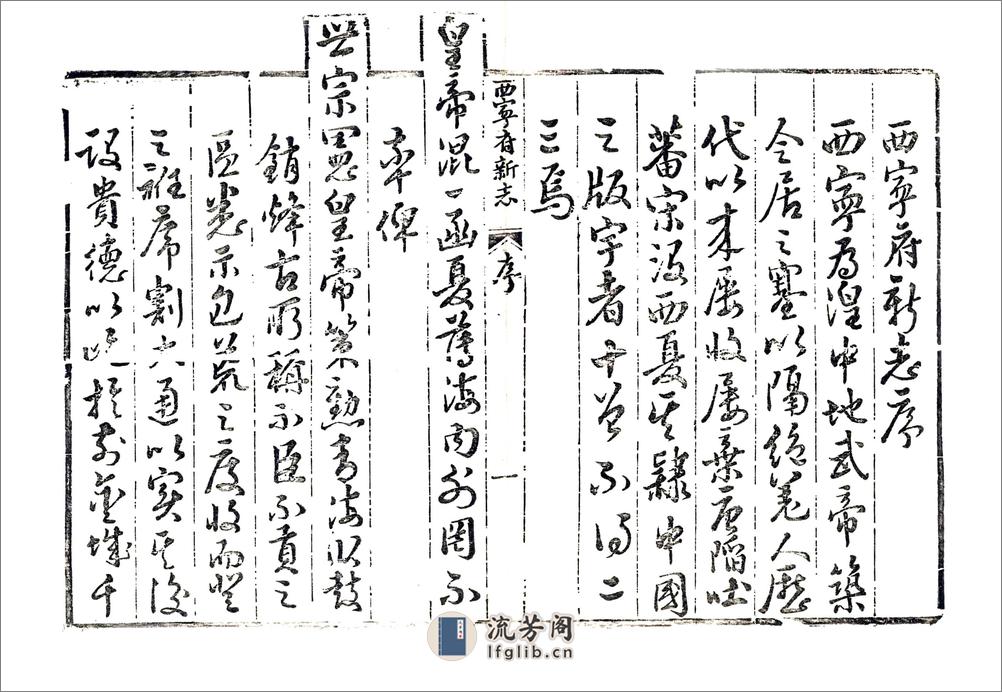 西寧府新志序
西寧為湟中地武帝築
令居之塞以隔絕羌人歷
代以來屢收屢棄唐陷吐
蕃宋沒西夏其隸中國
之版宇者十曾不得二
三焉
西寧府新志 序 一
皇帝混一函夏薄海內外罔不
率俾
世宗憲皇帝策勳青海臥鼓
銷烽古所稱不臣不貢之
區悉示包荒之度收而登
之衽席割大通以實其後
設貴德以 於前金城千
流芳阁
lfglib.cn